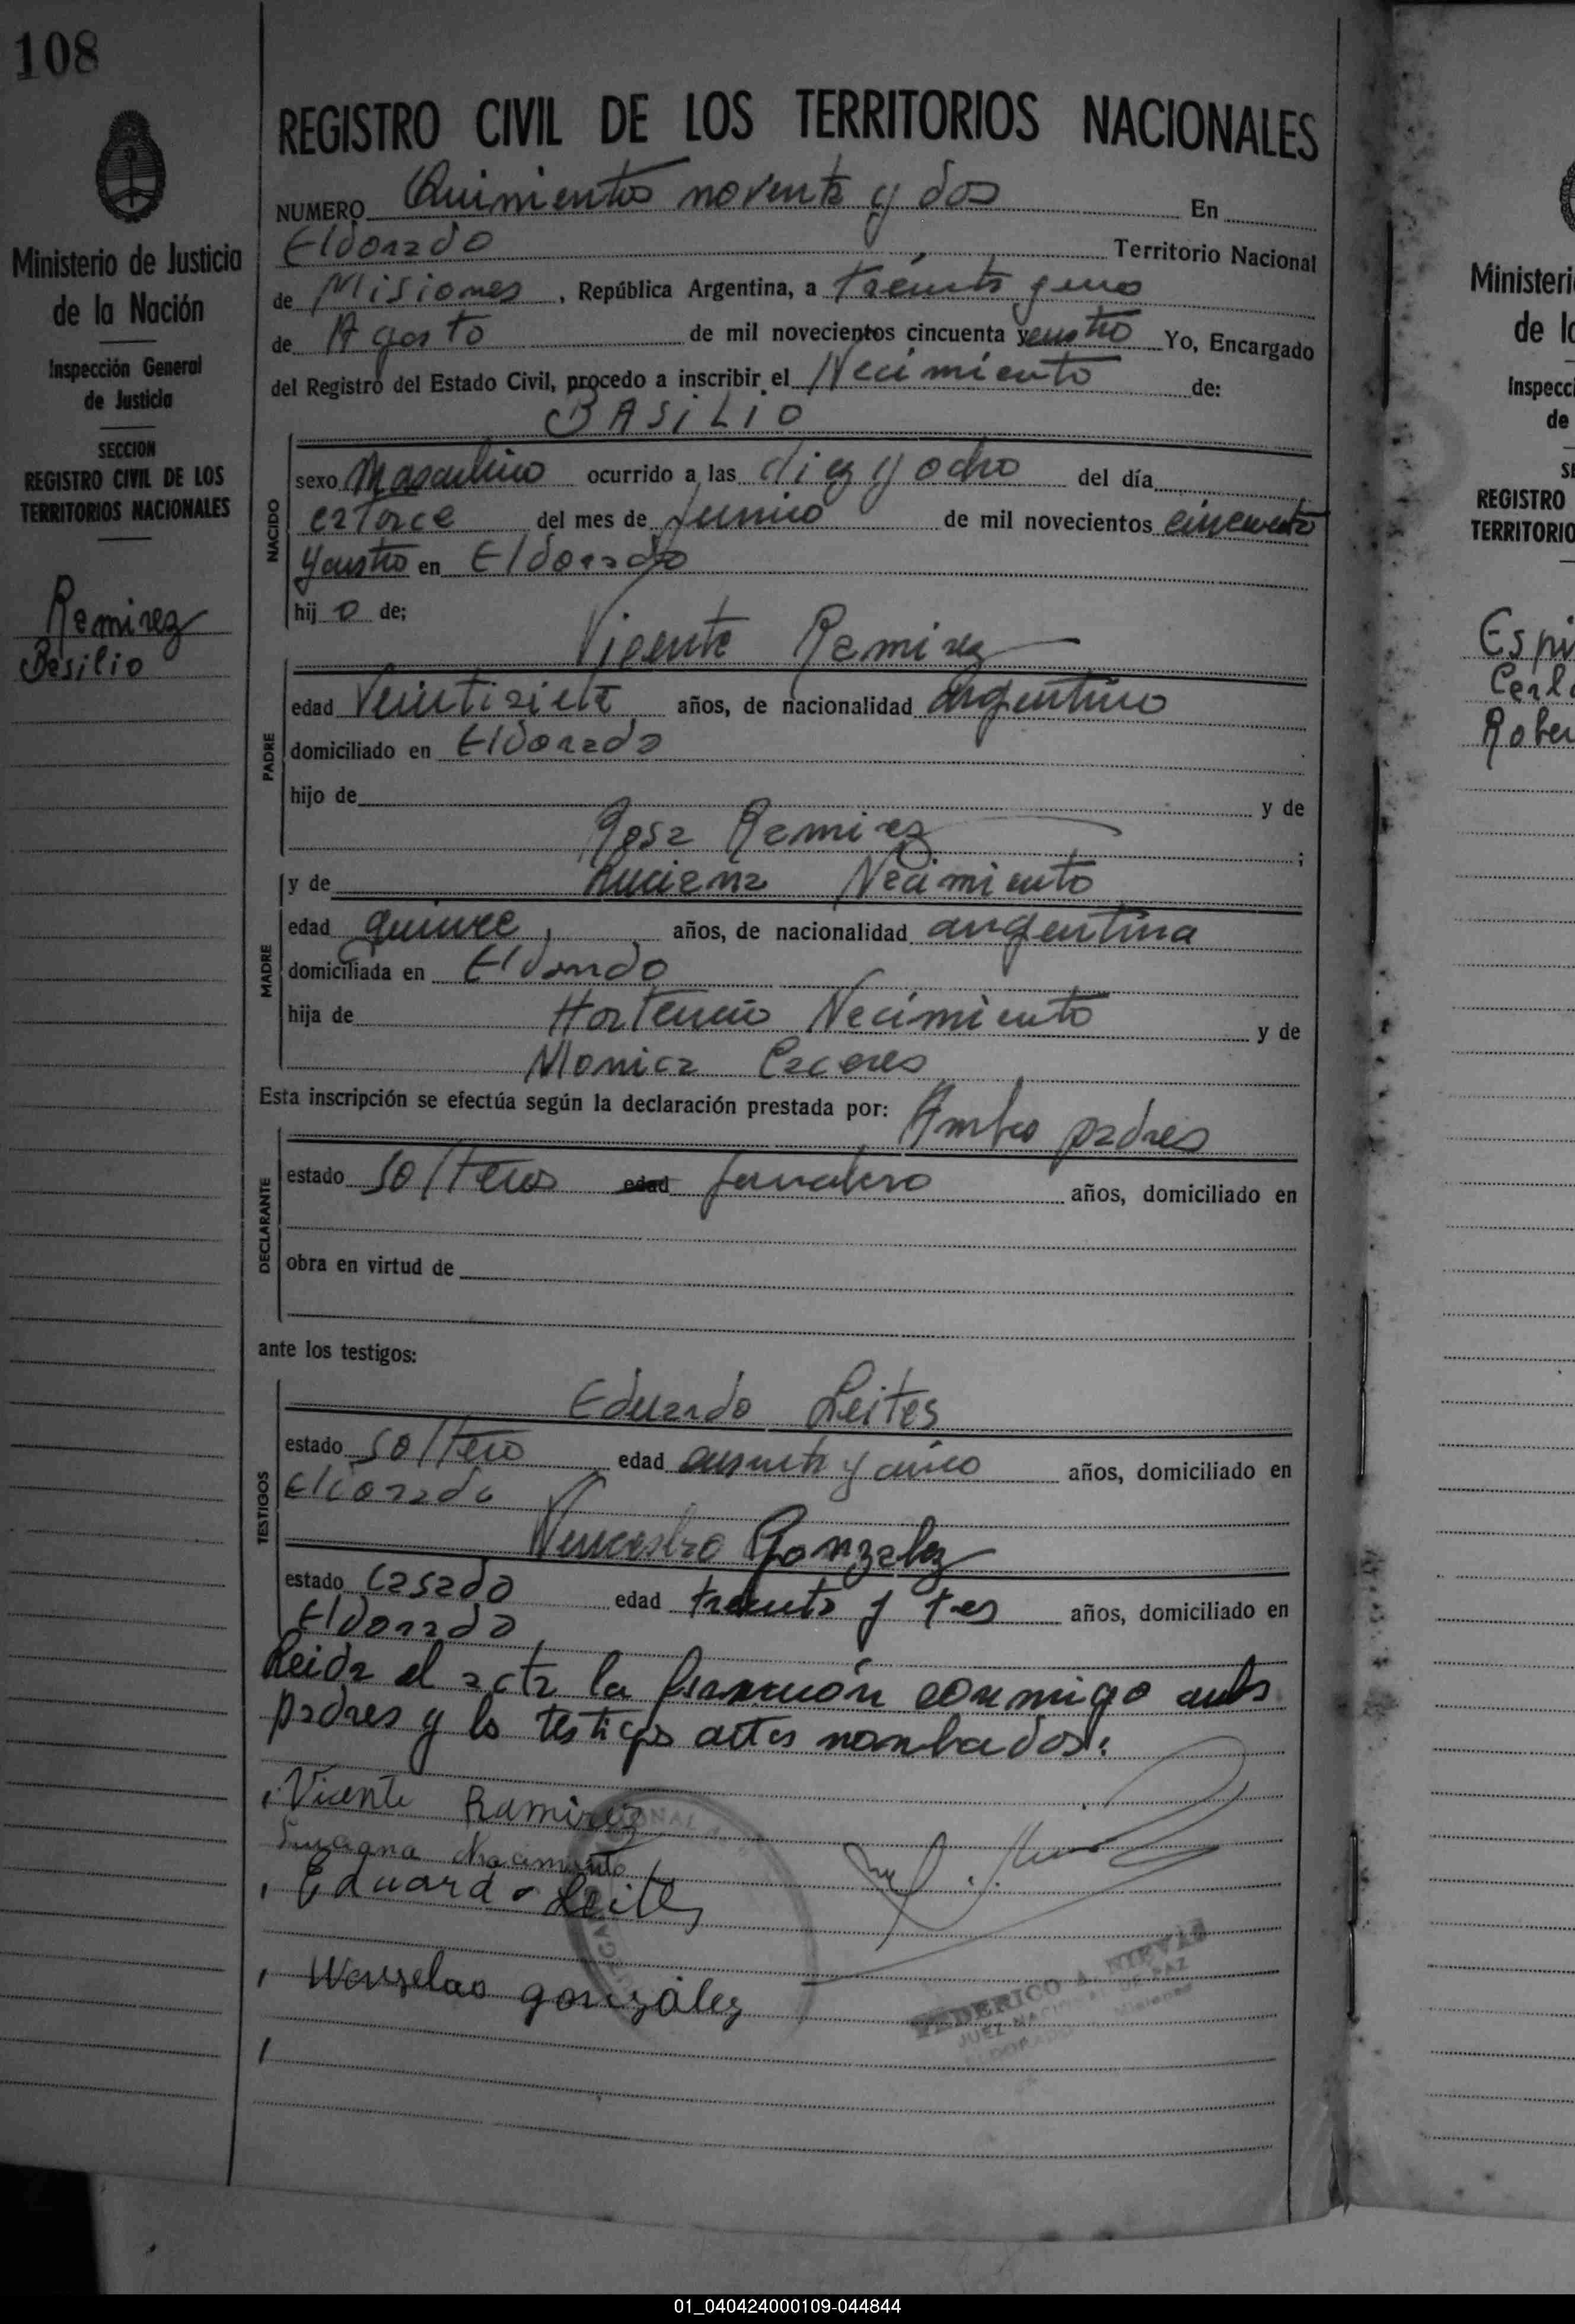 108
REGISTRO CIVIL DE LOS TERRITORIOS NACIONALES
Ministerio de Justicia
de la Nación
Inspección General
de Justicia
SECCION
REGISTRO CIVIL DE LOS
TERRITORIOS NACIONALES
Ramirez
Basilio
NUMERO Quinientos noventa y dos En
Eldorado Territorio Nacional
de Misiones, República Argentina, a treinta y uno
de Agosto de mil novecientos cincuenta y cuatro Yo, Encargado
del Registro del Estado Civil, procedo a inscribir el Nacimiento de:
BASILIO
NACIDO
sexo Masculino ocurrido a las diez y ocho del día
catorce del mes de Junio de mil novecientos cincuenta
y cuatro en Eldorado
hijo de;
Vicente Ramirez
PADRE
edad Veintisiete años, de nacionalidad argentino
domiciliado en Eldorado
hijo de y de
Rosa Ramirez ;
y de Luciana Nacimiento
MADRE
edad quince, años, de nacionalidad argentina
domiciliada en Eldorado
hija de Hortencio Nacimiento y de
Monica Caceres
Esta inscripción se efectúa según la declaración prestada por: Ambos padres
DECLARANTE
estado Solteros edad jornalero años, domiciliado en
obra en virtud de
ante los testigos:
TESTIGOS
Eduardo Leites
estado soltero edad cuarenta y cinco años, domiciliado en
Eldorado
Wenceslao Gonzalez
estado casado edad treinta y tres años, domiciliado en
Eldorado
Leida el acta la firmaron conmigo ambos
padres y los testigos antes nombrados.
Vicente Ramirez
Luciana Nacimiento
Eduardo Leites
Wenzelao gonzález
FEDERICO A. NIEVAS
JUEZ NACIONAL DE PAZ
ELDORADO Misiones
Ministeri
de la
Inspecci
de
REGISTRO
TERRITORIO
Espi
Carl
Rober
01_040424000109-044844